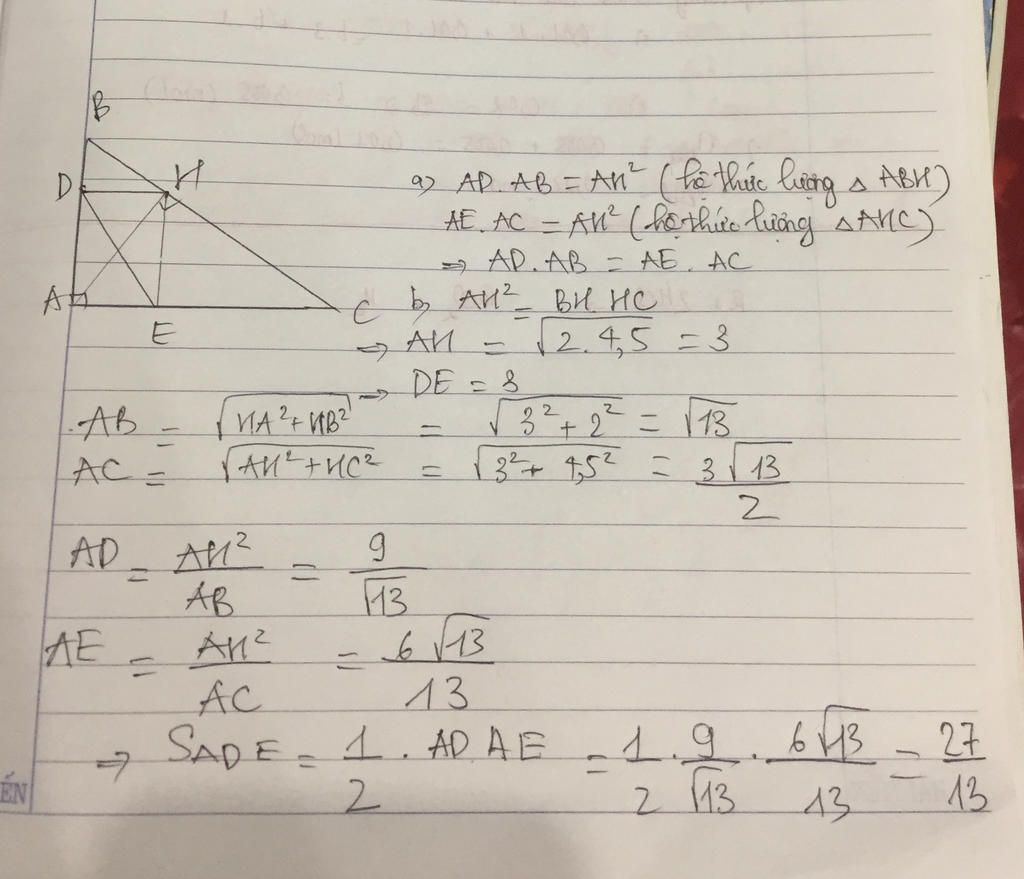 B
D
H
A
E
C
a) AD.AB = AH² (hệ thức lượng △ ABH)
AE.AC = AH² (hệ thức lượng △ AHC)
⇒ AD.AB = AE.AC
b, AH² = BH.HC
⇒ AH = √(2.4,5) = 3
→ DE = 3
.AB = √(HA²+HB²) = √(3²+2²) = √13
AC = √(AH²+HC²) = √(3²+4,5²) = 3√13/2
AD = AH²/AB = 9/√13
AE = AH²/AC = 6√13/13
⇒ SADE = 1/2 . AD.AE = 1/2 . 9/√13 . 6√13/13 = 27/13
ẾN